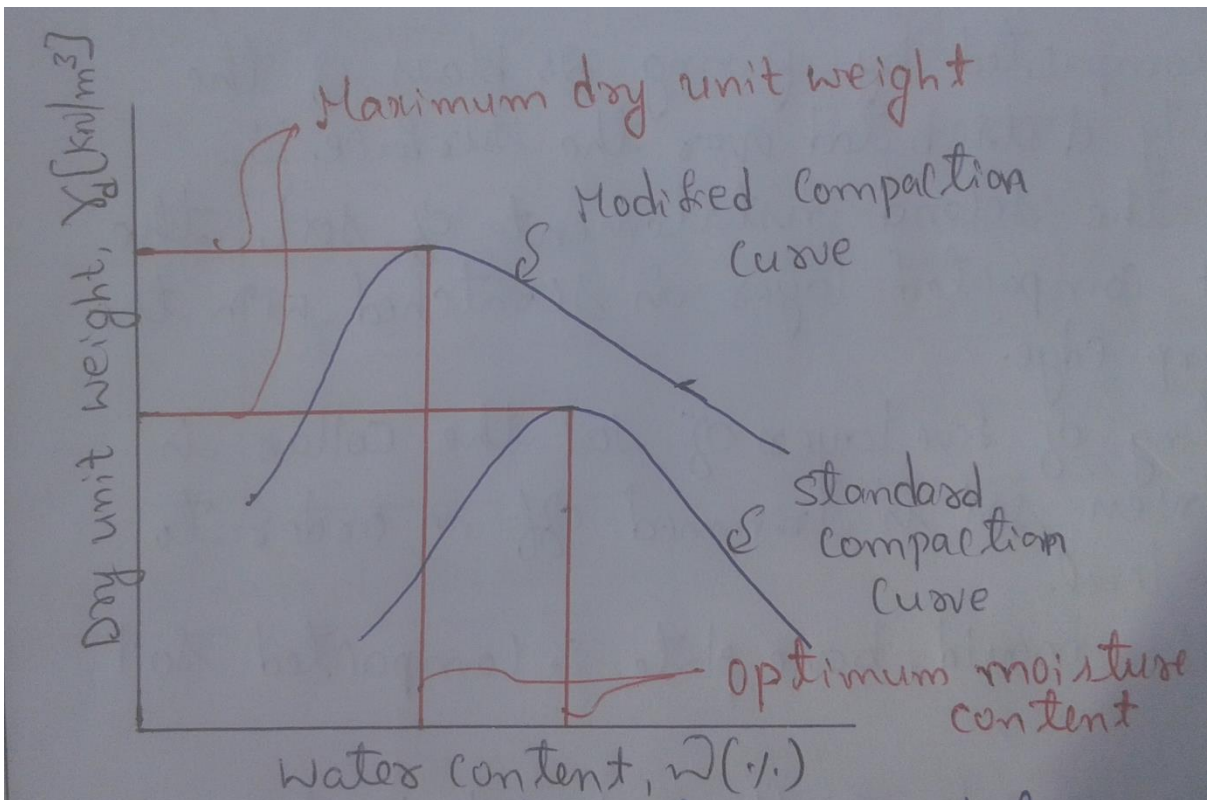 Dry unit weight, γd[kN/m³]
Maximum dry unit weight
Modified Compaction
Curve
Standard
Compaction
Curve
Optimum moisture
content
Water content, W(%)